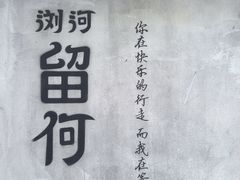 浏河
留何
你在快乐的行走 而我在